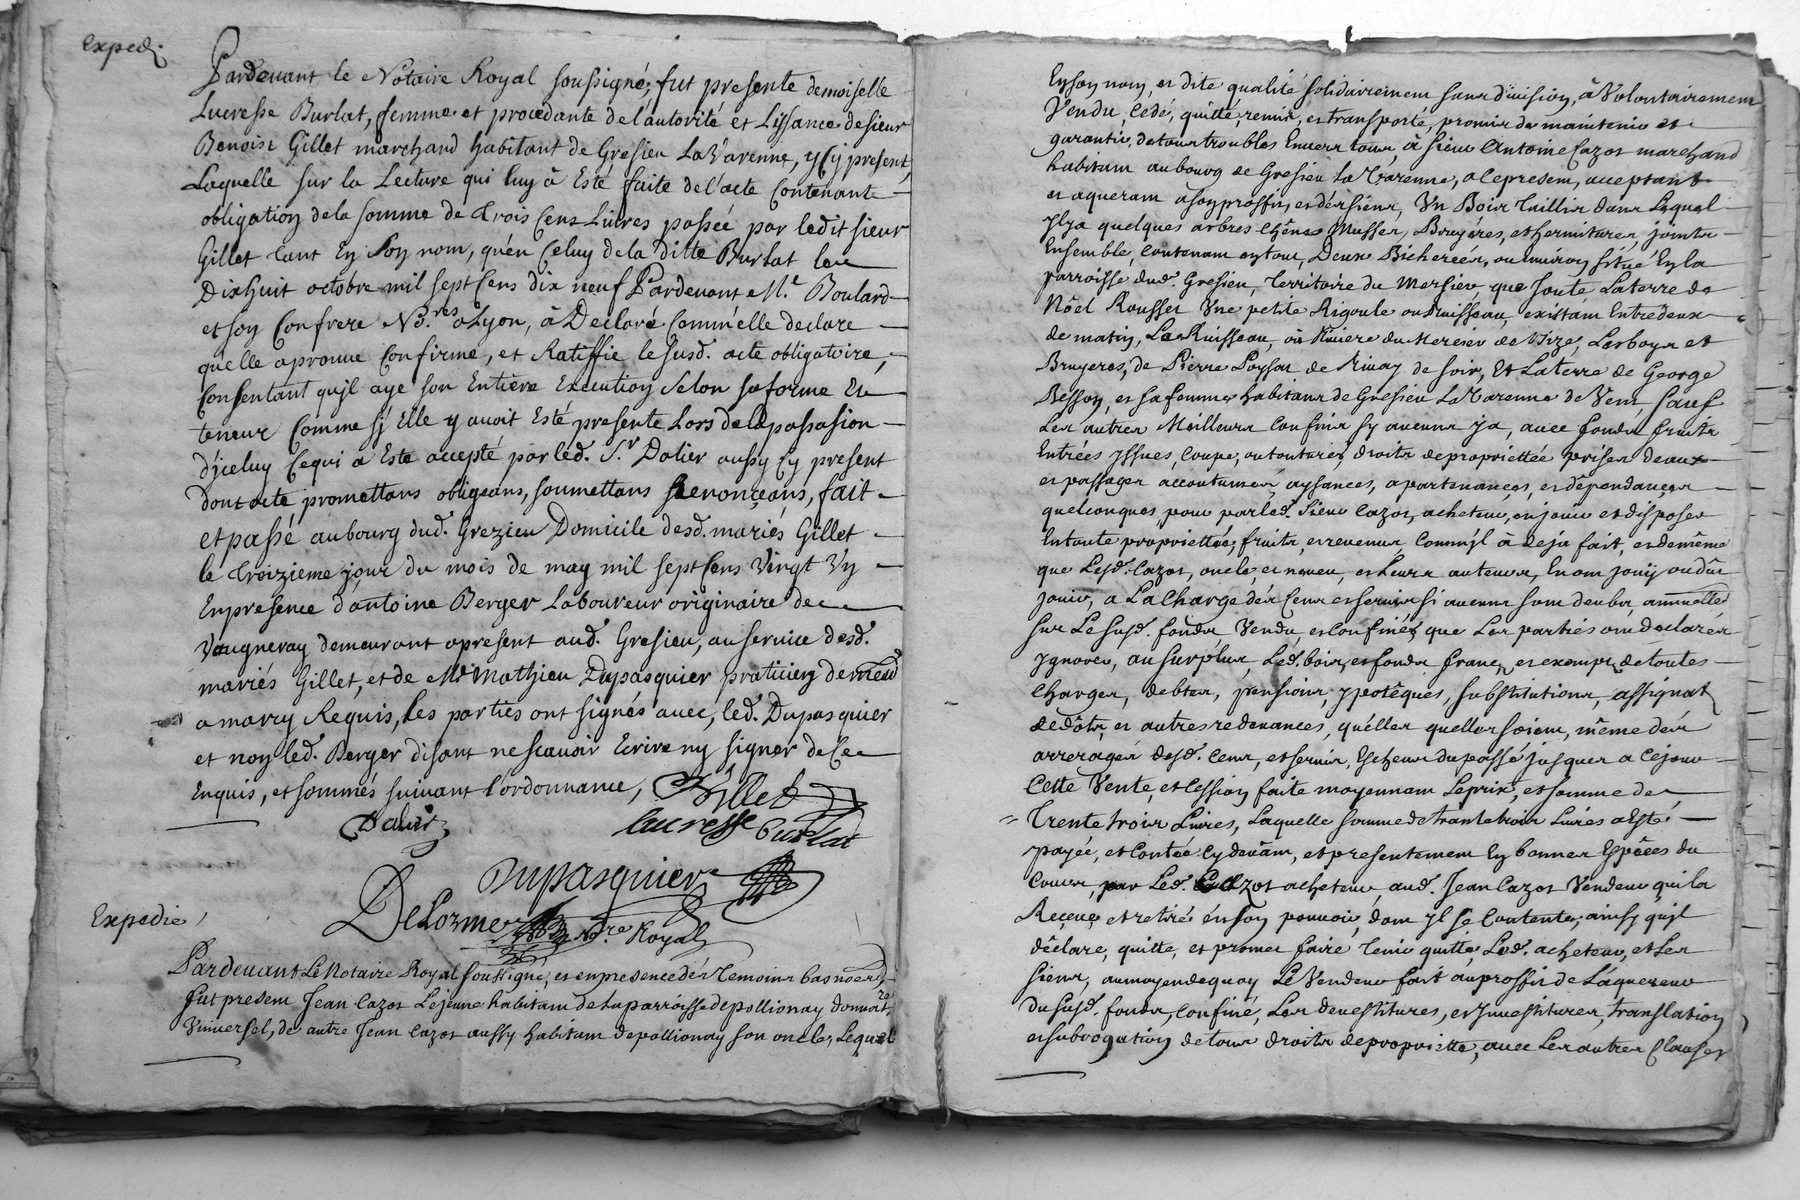 Expedi.
Pardevant le Notaire Royal soussigné, fut presente demoiselle
Lucresse Burlat, femme et procedante de l'autorité et Lissance de sieur
Benoist Gillet marchand habitant de Gresieu La Varenne, y Cy present,
Laquelle sur la Lecture qui luy à Esté faite de l'acte Contenant
obligation de la somme de Trois Cens Livres passée par ledit sieur
Gillet tant En Son nom, qu'en Celuy de la ditte Burlat le
Dixhuit octobre mil sept Cens dix neuf Pardevant Me. Boulard
et son Confrere No.res a Lyon, à Declaré Comm'elle declare
quelle aprouve Confirme, et Ratiffie le susd. acte obligatoire,
Consentant qu'jl aye son Entiere Execution Selon sa forme Et
teneur Comme sy Elle y avoit Esté presente Lors de la passasion
d'jceluy Cequi a Este accepté par led. Sr. Dalier aussy Cy present
dont acte promettans obligeans, soumettans Renonceans, fait
et passé au bourg dud. Grezieu Domicile desd. mariés Gillet
le Troizieme jour du mois de may mil sept Cens Vingt Un
En presence d'antoine Berger Laboureur originaire de
Vaugneray demeurant apresent aud. Gresieu, au service desd.
mariés Gillet, et de Me Mathieu Dupasquier praticien
a marcy Requis, Les parties ont signés avec, led. Dupasquier
et non led. Berger disant ne scavoir Ecrire ny signer de Ce
Enquis, et sommés suivant l'ordonnance, Gillet
Dalier Lucresse Burlat
Dupasquier
DeLorme No.re Royal
Expedié
Pardevant Le Notaire Royal soussigné, et en presence dés Temoins bas només,
fut present Jean Cazot Lejeune habitant de la parroisse de pollionay donnat.re
Universel, de autre Jean Cazot aussy habitant de pollionay son oncle, Lequel
En son nom, et dite qualité solidairement sans division, à Volontairement
Vendu, Cédé, quitté, remis, et transporté, promis de maintenir et
garantir de tous troubles Envers tous, à sieur Antoine Cazot marchand
habitant au bourg de Gresieu La Varenne, a Cepresent, acceptant
et aquerant a son proffit, et dés siens, Un Bois Taillis dans Lequel
Jlya quelques arbres chênes Musser, Bruyéres, et hermitures, joints
Ensemble, Contenant en tout, Deux Bicherées, ou environ situé En la
parroisse dud. Gresieu, Territoire du Mersieu que Joute La terre de
Nöel Rousset Une petite Rigoule ou Ruisseau, existant Entredeux
de matin, Le Ruisseau, ou Riviere du Meresier de Vize, Les boys et
Bruyeres, de Pierre Poyson de Rivay de soir, Et La terre de George
Besson, et sa femme habitans de Gresieu La Varenne de Vent, Sauf
Les autres Meilleurs Confins sy aucuns ja, avec fonds fruits
Entrées yssues, Coupe, ou toutures, droits de propriettée prises d'eaux
et passages accoutumés, aysances, apartenances, et dépendances
quelconques, pour par led. Sieur Cazot, acheteur, en jouir et disposer
En toute propriettée, fruits, et revenus Comm'jl à deja fait, et de même
que Lesd. Cazot, oncle, et neveu, et Leurs auteurs, En ont jouÿ ou dû
jouir, a La Charge dés Cens et servis si aucuns sont deubs, annuelle
sur Le susd. fonds Vendu, et Confiné, que Les partiés ont declarés
ygnorer, au surplus, Led. bois, et fonds franc, et exempt, de toutes
charges, debtes, pensions, ypotêques, substitutions, assignat
de dôts, et autres redevances, quélles quelles soient, même dés
arreragés desd. Cens, et servis, Escheus du passé jusques a Cejour
Cette Vente, et Cession faite moyennant Le prix, et somme de
Trente trois Livres, Laquelle somme de trente trois Livres a Esté
payée, et Contée Cy devant, et presentement En bonnes Espêces du
Cours, par Led. Cazot acheteur, aud. Jean Cazot Vendeur qui la
Reçeue, et retiré én son pouvoir, dont jl se Contente, ainsy qu'jl
dêclare, quitte, et promet faire Tenir quitte, Led. acheteur, et Les
siens, au moyen dequoy Le Vendeur fait au proffit de L'aquereur
du susd. fonds, Confiné, Les devestitures, et jnvestitures, translation
et subrogation de tous droits de propriette, avec Les autres Clauses